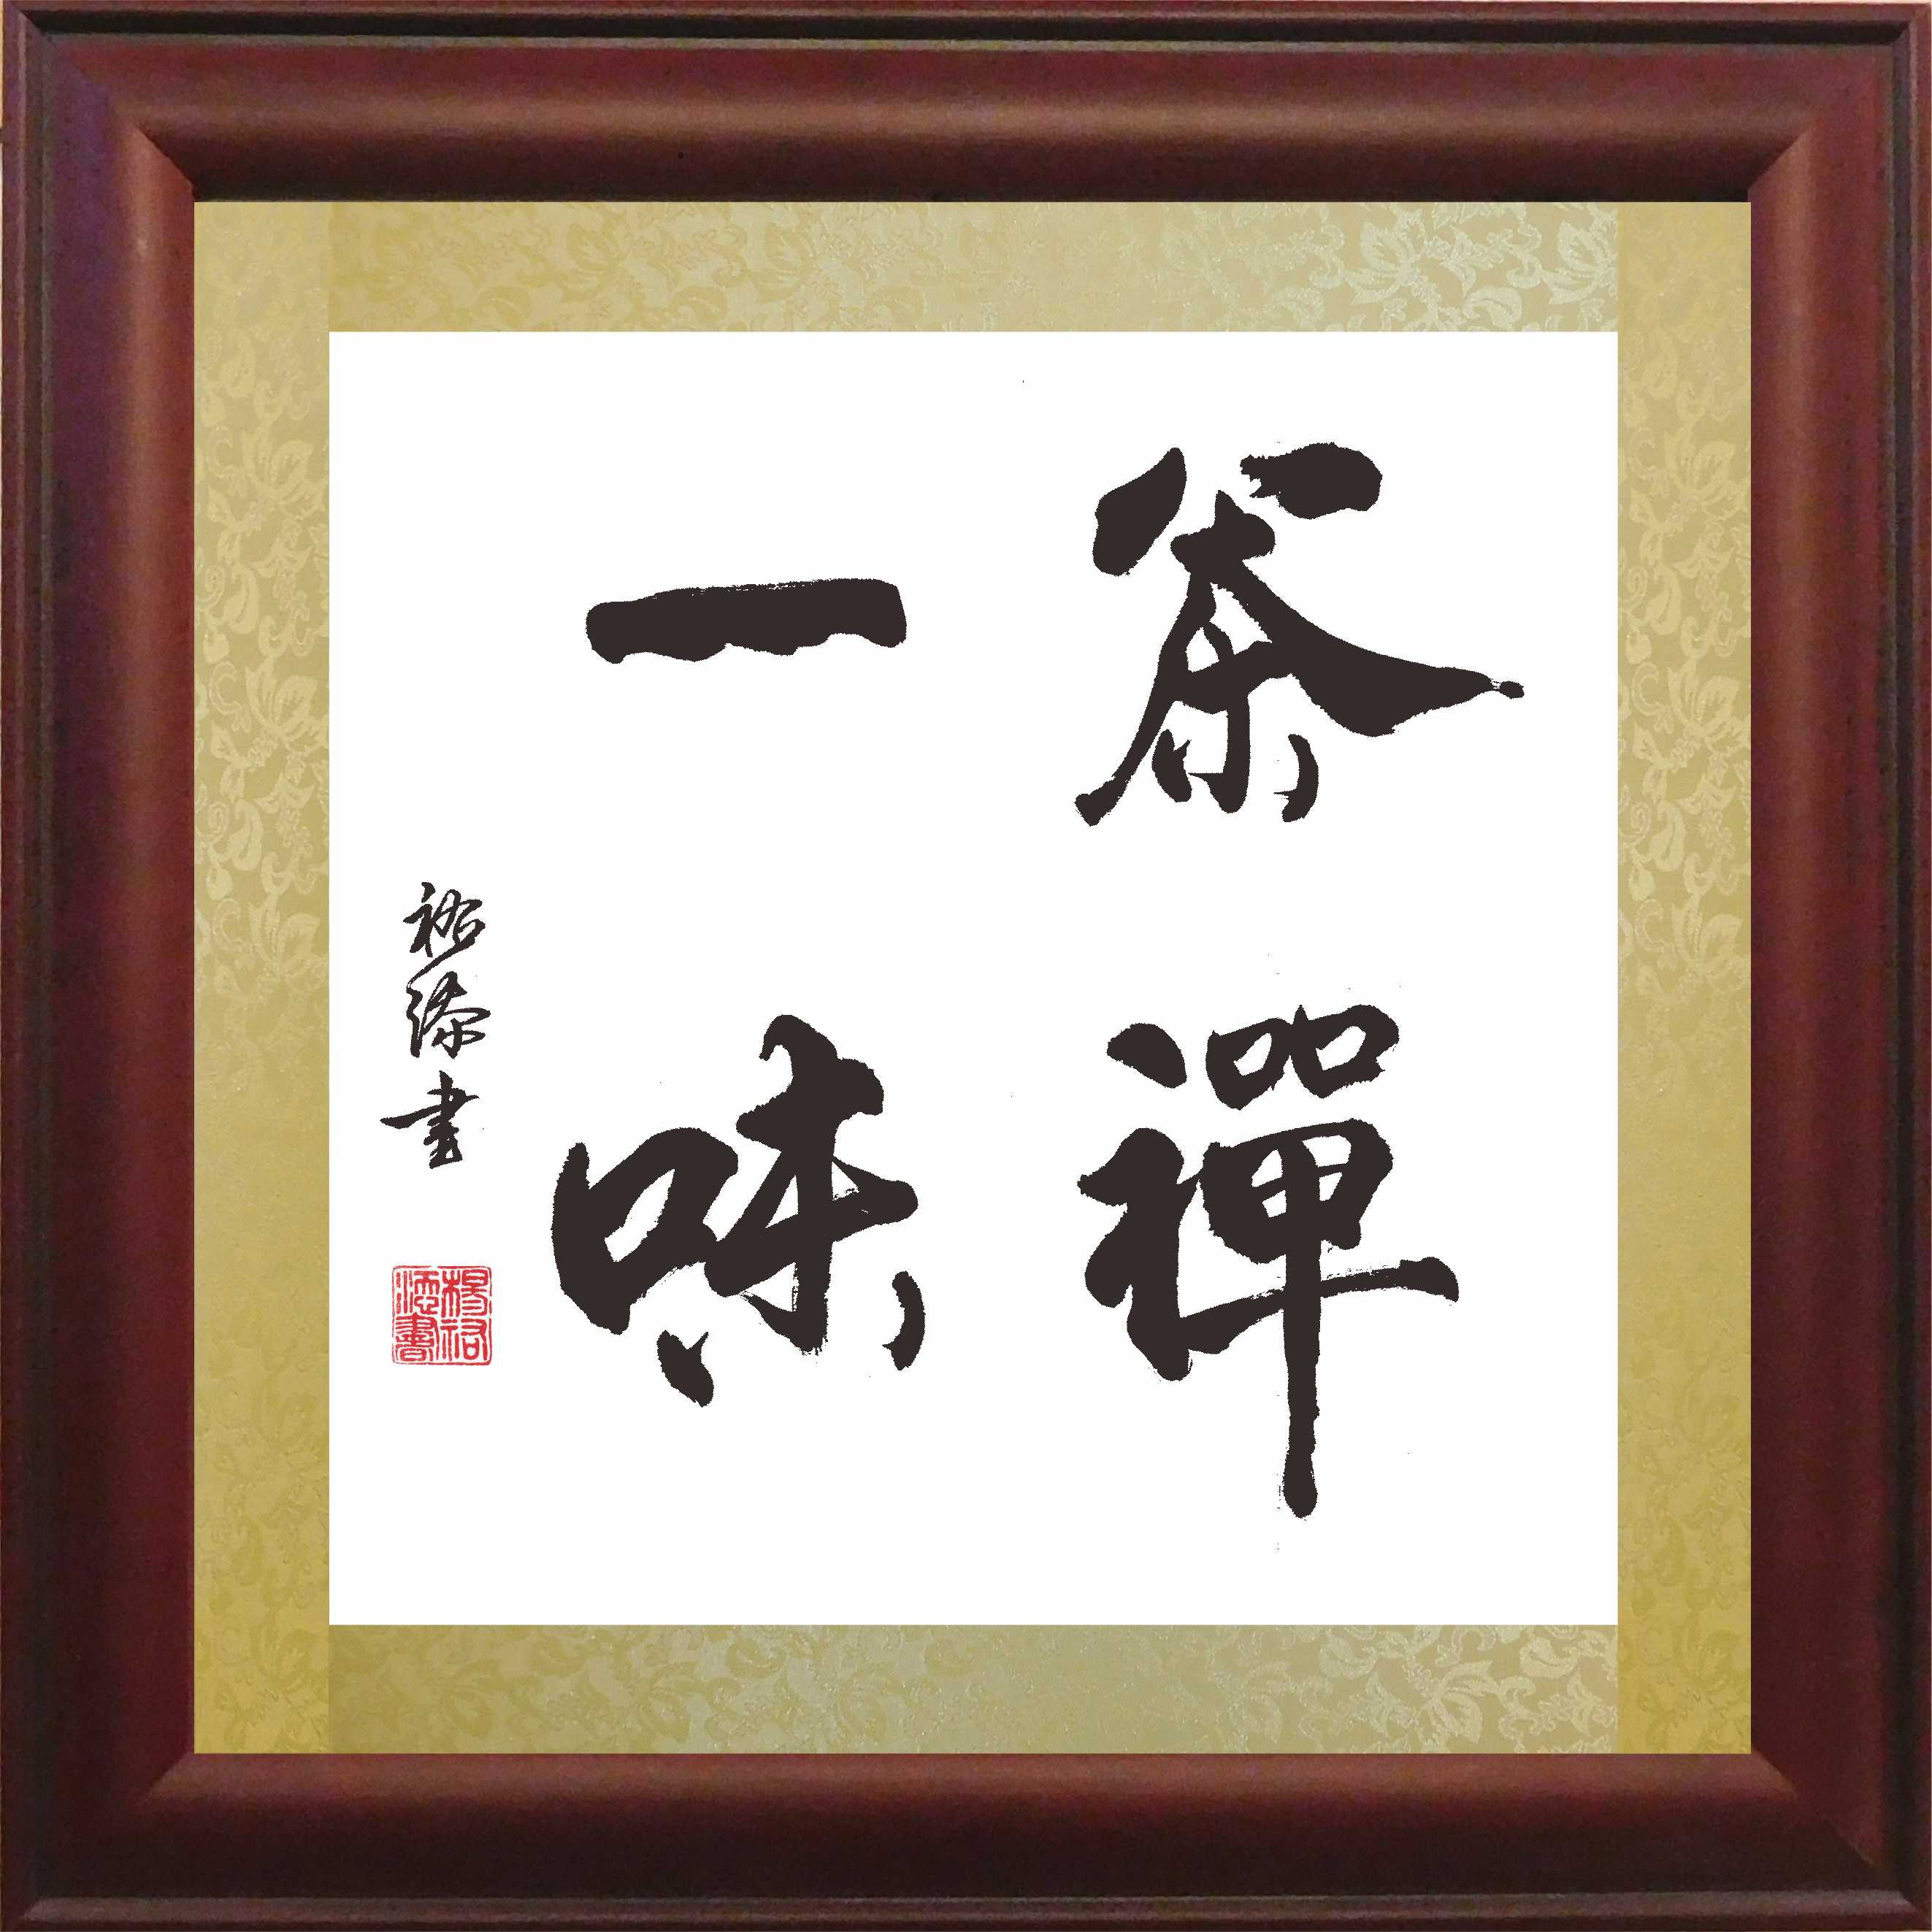 茶禪
一味
祐添書
楊祐
添書